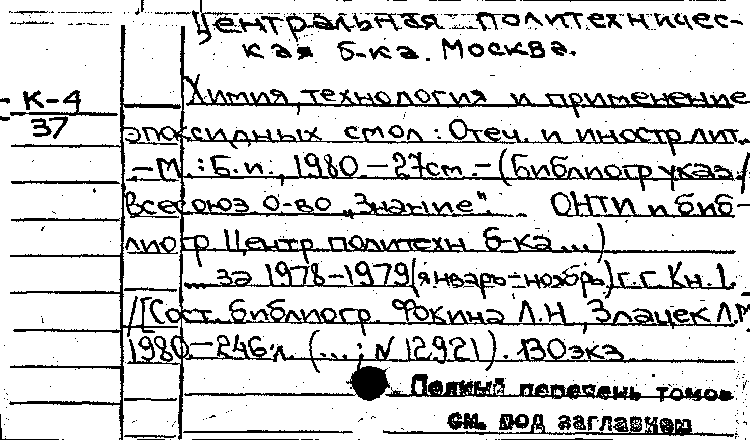 Центральная политехничес-
кая б-ка. Москва.
К-4
37
Химия, технология и применение
эпоксидных смол: Отеч. и иностр. лит.
-М.: Б.и., 1980 -27см. - (Библиогр. указ. /
Всесоюз. о-во „Знание". ОНТИ и биб-
лиогр Центр. политехн. б-ка...)
... за 1978-1979 (январь-ноябрь) г.г. Кн. 1.
/[Сост. библиогр. Фокина Л.Н., Злацек Л.М.
1980 - 246 л. (...; N 12921). 130экз.
Полный перечень томов
см. под заглавием